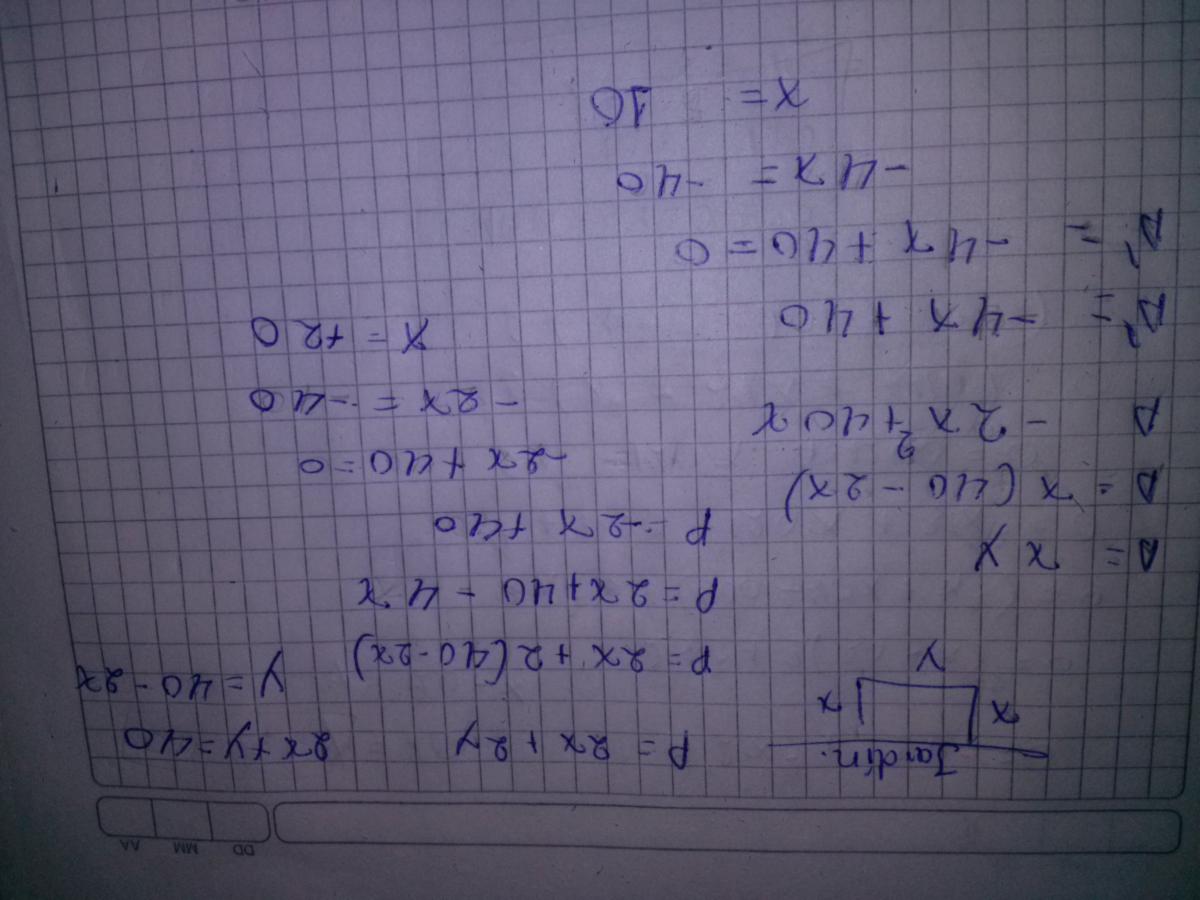 DD MM AA
P = 2x + 2y
2x + y = 40
y = 40 - 2x
Jardin.
x
x
y
P = 2x + 2(40 - 2x)
P = 2x + 40 - 4x
P -2x + 40
-2x + 40 = 0
-2x = -40
x = +20
A = x y
A = x (40 - 2x)
A - 2x² + 40x
A' = -4x + 40
A' = -4x + 40 = 0
-4x = -40
x = 10